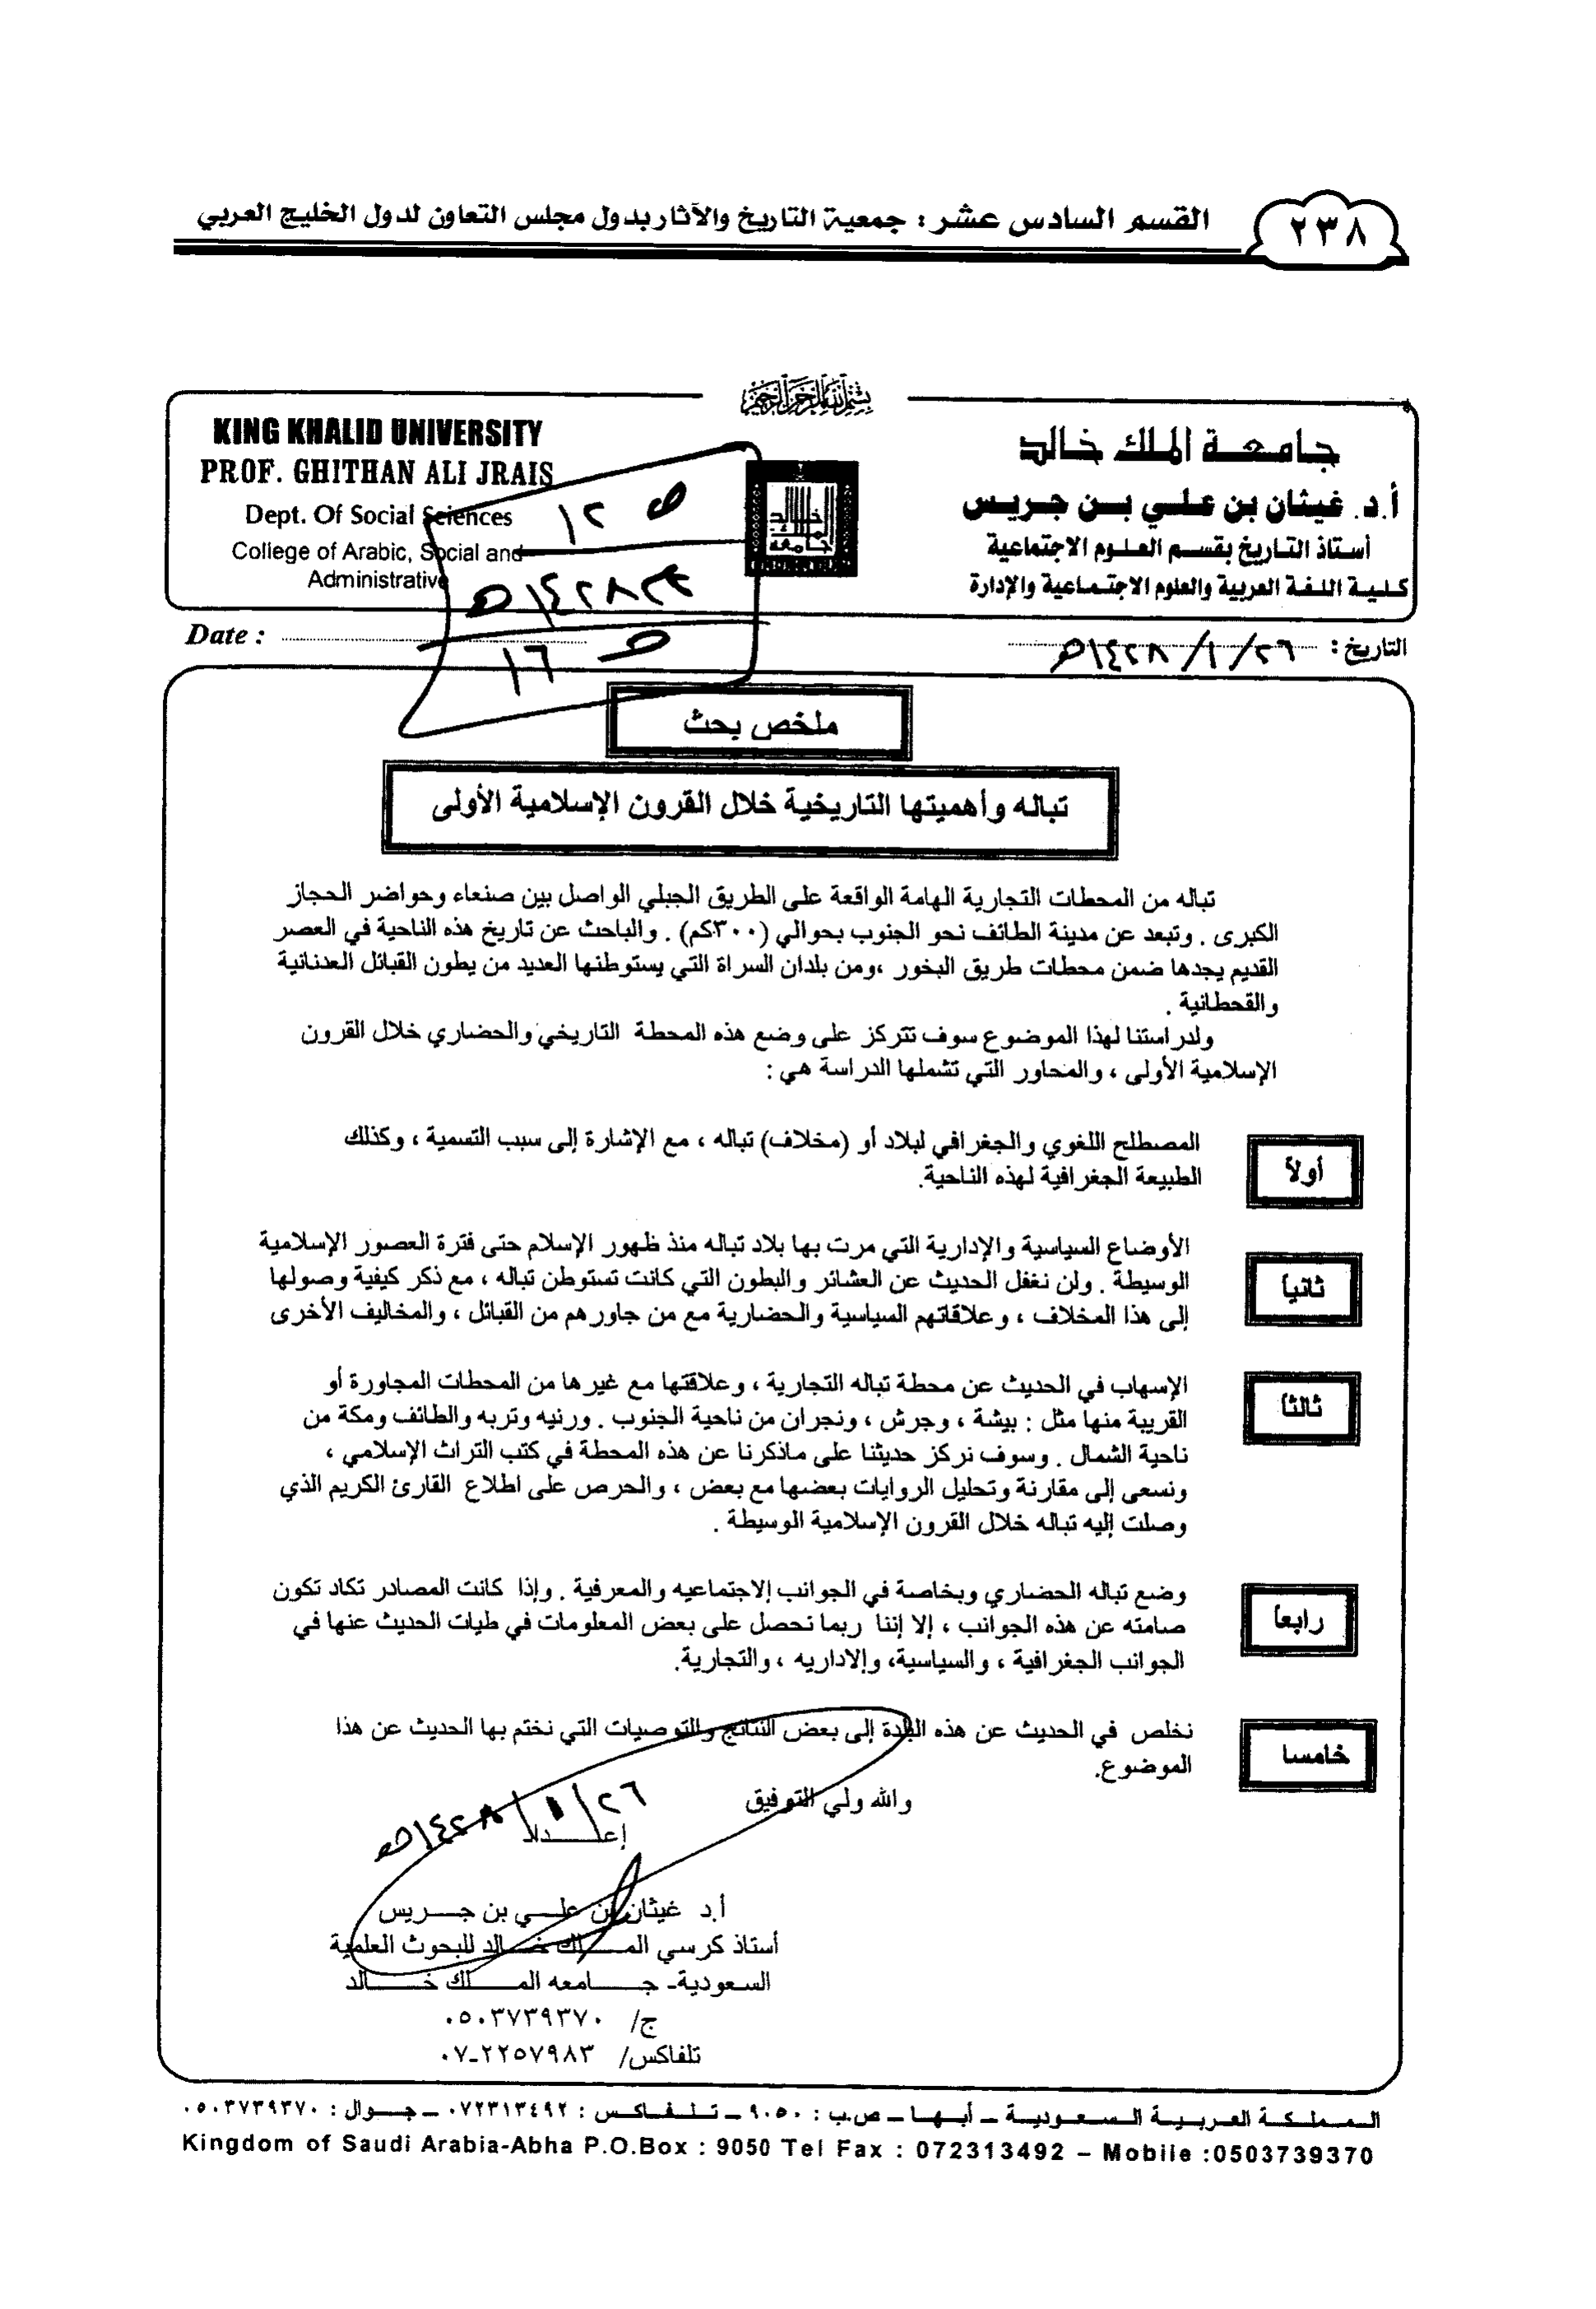 ٢٣٨
القسم السادس عشر : جمعية التاريخ والآثار بدول مجلس التعاون لدول الخليج العربي
بسم الله الرحمن الرحيم
KING KHALID UNIVERSITY
PROF. GHITHAN ALI JRAIS
Dept. Of Social Sciences
College of Arabic, Social and
Administrative
جامعة الملك خالد
أ.د. غيثان بن علي بن جريس
أستاذ التاريخ بقسم العلوم الاجتماعية
كلية اللغة العربية والعلوم الاجتماعية والإدارة
ص ١٢
١٤٢٨هـ
ص ١٦
Date :
التاريخ : ٢٦/١/١٤٢٨هـ
ملخص بحث
تباله وأهميتها التاريخية خلال القرون الإسلامية الأولى
تباله من المحطات التجارية الهامة الواقعة على الطريق الجبلي الواصل بين صنعاء وحواضر الحجاز
الكبرى . وتبعد عن مدينة الطائف نحو الجنوب بحوالي (٣٠٠كم) . والباحث عن تاريخ هذه الناحية في العصر
القديم يجدها ضمن محطات طريق البخور ،ومن بلدان السراة التي يستوطنها العديد من بطون القبائل العدنانية
والقحطانية .
ولدراستنا لهذا الموضوع سوف تتركز على وضع هذه المحطة التاريخي والحضاري خلال القرون
الإسلامية الأولى ، والمحاور التي تشملها الدراسة هي :
أولاً
المصطلح اللغوي والجغرافي لبلاد أو (مخلاف) تباله ، مع الإشارة إلى سبب التسمية ، وكذلك
الطبيعة الجغرافية لهذه الناحية.
ثانياً
الأوضاع السياسية والإدارية التي مرت بها بلاد تباله منذ ظهور الإسلام حتى فترة العصور الإسلامية
الوسيطة . ولن نغفل الحديث عن العشائر والبطون التي كانت تستوطن تباله ، مع ذكر كيفية وصولها
إلى هذا المخلاف ، وعلاقاتهم السياسية والحضارية مع من جاورهم من القبائل ، والمخاليف الأخرى
ثالثاً
الإسهاب في الحديث عن محطة تباله التجارية ، وعلاقتها مع غيرها من المحطات المجاورة أو
القريبة منها مثل : بيشة ، وجرش ، ونجران من ناحية الجنوب . ورنيه وتربه والطائف ومكة من
ناحية الشمال . وسوف نركز حديثنا على ماذكرنا عن هذه المحطة في كتب التراث الإسلامي ،
ونسعى إلى مقارنة وتحليل الروايات بعضها مع بعض ، والحرص على اطلاع القارئ الكريم الذي
وصلت إليه تباله خلال القرون الإسلامية الوسيطة .
رابعاً
وضع تباله الحضاري وبخاصة في الجوانب إلاجتماعيه والمعرفية . وإذا كانت المصادر تكاد تكون
صامته عن هذه الجوانب ، إلا إننا ربما نحصل على بعض المعلومات في طيات الحديث عنها في
الجوانب الجغرافية ، والسياسية، وإلاداريه ، والتجارية.
خامسا
نخلص في الحديث عن هذه البلدة إلى بعض النتائج والتوصيات التي نختم بها الحديث عن هذا
الموضوع.
والله ولي التوفيق
٢٦/١/١٤٢٨هـ
إعداد
أ.د غيثان بن علي بن جريس
أستاذ كرسي الملك خالد للبحوث العلمية
السعودية- جامعه الملك خالد
ج/ ٠٥٠٣٧٣٩٣٧٠
تلفاكس/ ٢٢٥٧٩٨٣-٠٧
المملكة العربية السعودية – أبها – ص.ب : ٩٠٥٠ – تلفاكس : ٠٧٢٣١٣٤٩٢ – جوال : ٠٥٠٣٧٣٩٣٧٠
Kingdom of Saudi Arabia-Abha P.O.Box : 9050 Tel Fax : 072313492 – Mobile :0503739370